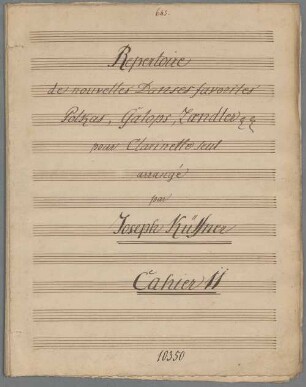 645.
Repertoire
de nouvelles Danses favorites
Polkas, Galops, Laendler
pour Clarinette seul
arrangé
par
Joseph Küffner
Cahier II
10350